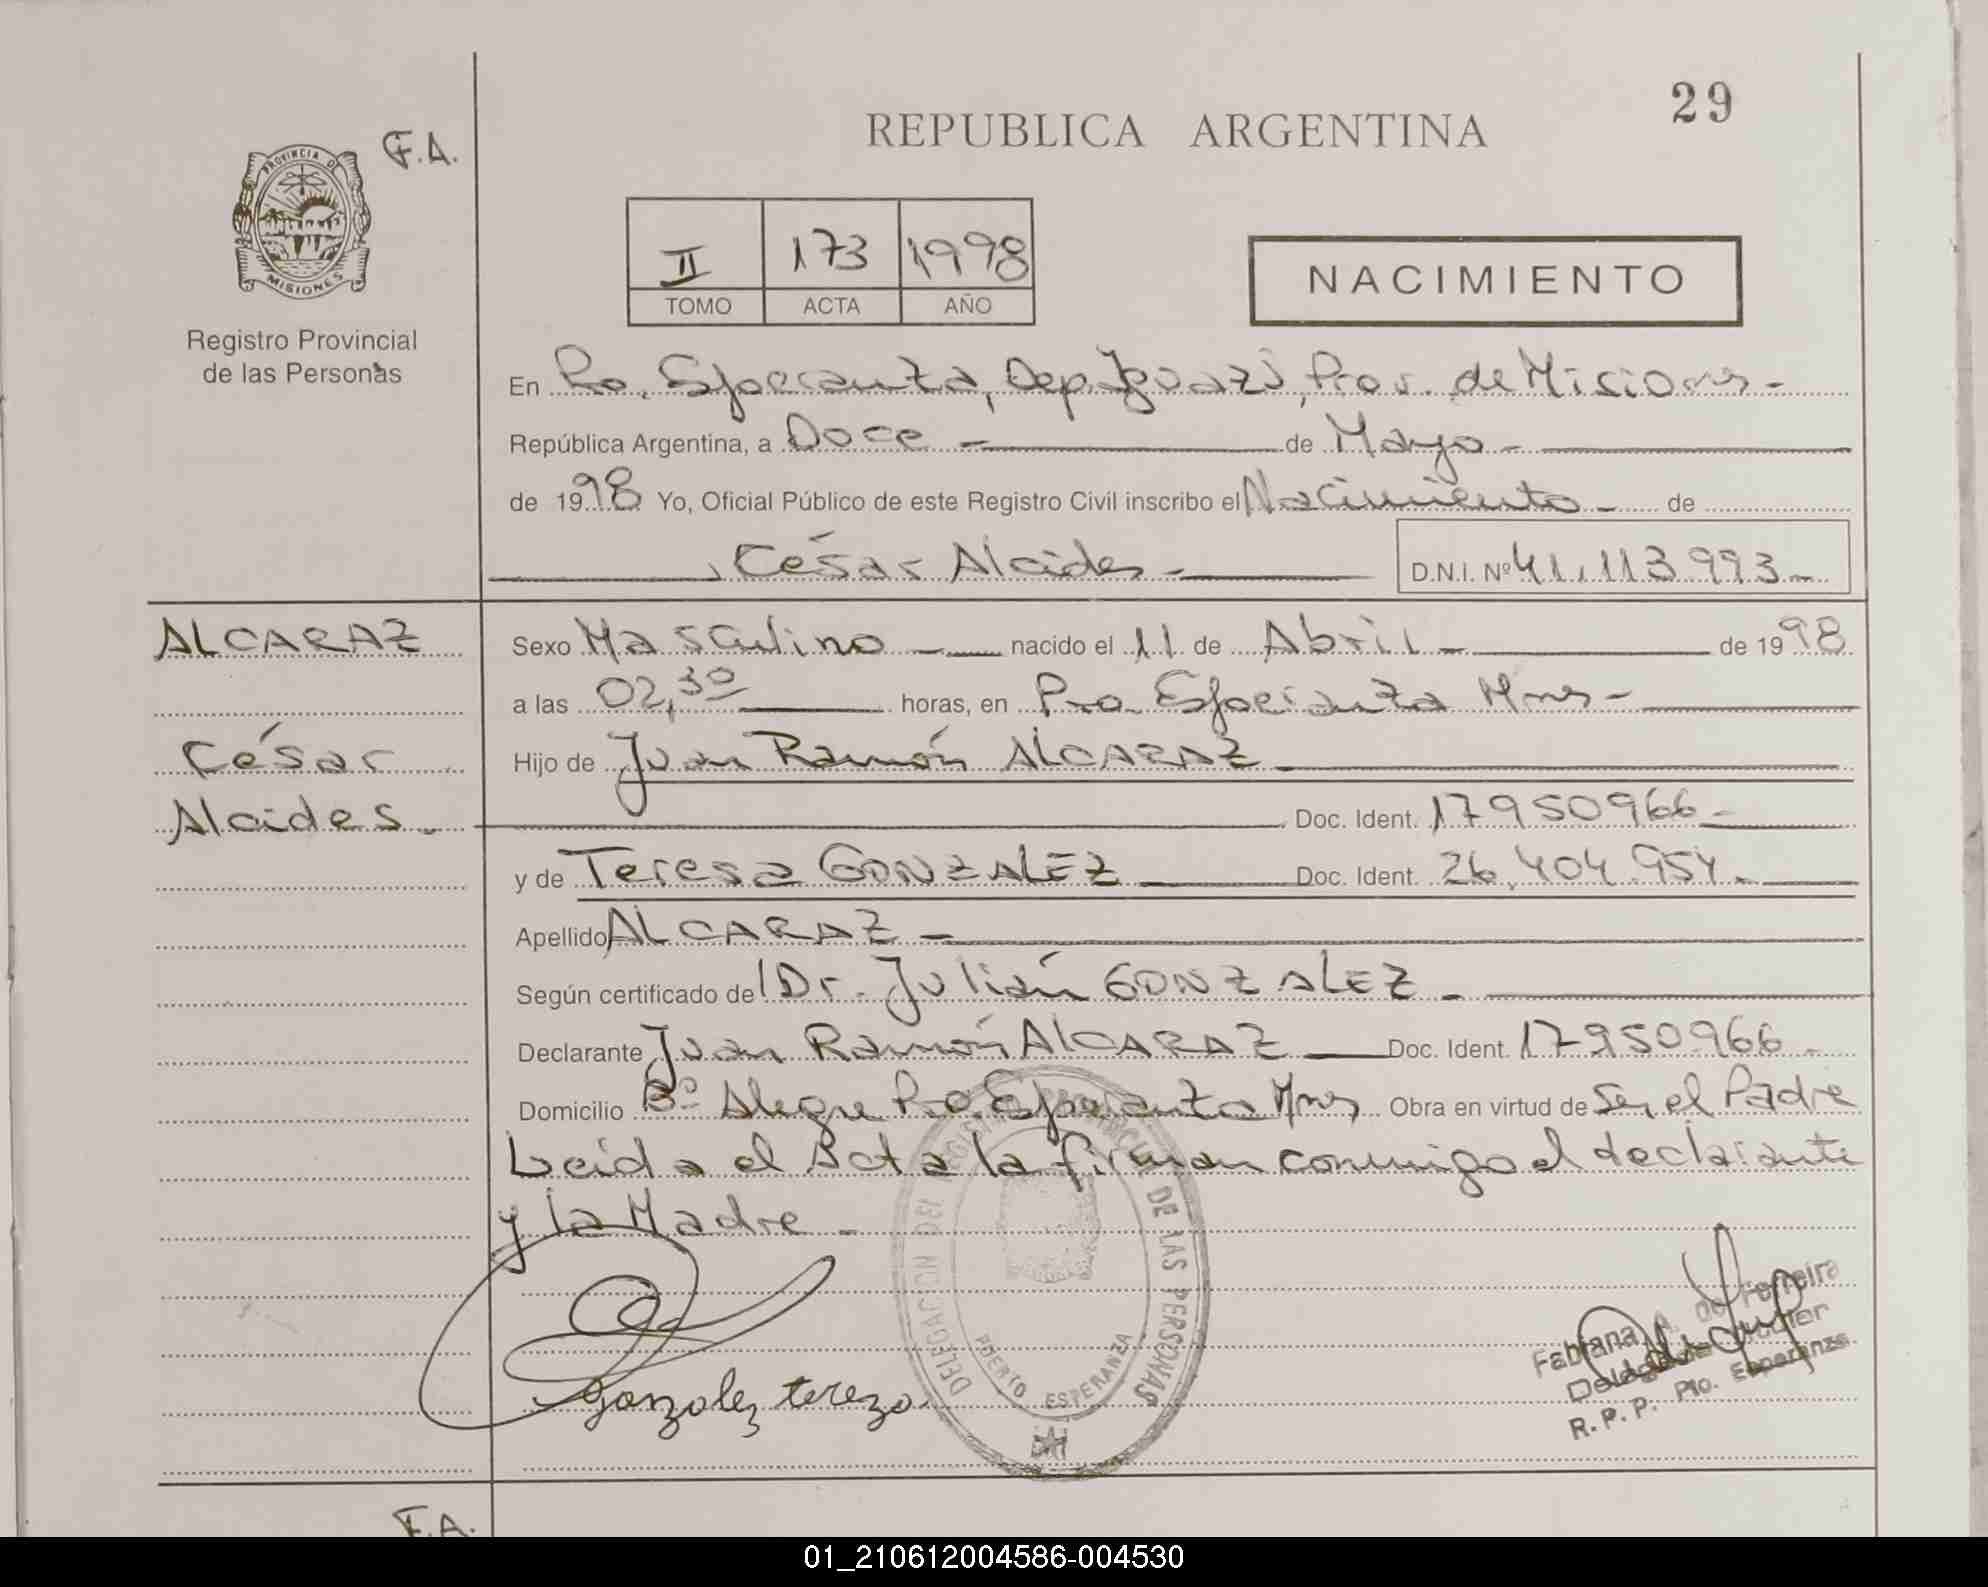 29
F.A.
REPUBLICA ARGENTINA
PROVINCIA DE
MISIONES
Registro Provincial
de las Personas
II 173 1998
TOMO ACTA AÑO
NACIMIENTO
En Pto. Esperanza, Dep. Iguazú, Prov. de Misiones-
República Argentina, a Doce - de Mayo -
de 1998 Yo, Oficial Público de este Registro Civil inscribo el Nacimiento - de
César Alcides - D.N.I. Nº 41.113.993-
ALCARAZ
César
Alcides.
Sexo Masculino - nacido el 11 de Abril - de 1998
a las 02,30 horas, en Pto. Esperanza Mnes-
Hijo de Juan Ramón ALCARAZ -
Doc. Ident. 17950966-
y de Teresa GONZALEZ Doc. Ident. 26.404.954.
Apellido ALCARAZ -
Según certificado del Dr. Julián GONZALEZ -
Declarante Juan Ramón ALCARAZ Doc. Ident. 17950966-
Domicilio Bº Alegre Pto. Esperanza Mnes Obra en virtud de Ser el Padre
Leida el Acta la firman conmigo el declarante
y la Madre -
gonzalez tereza
DELEGACION DEL REGISTRO PROVINCIAL DE LAS PERSONAS
PUERTO ESPERANZA
Fabiana A. de Ferreira
Delegada
R.P.P. Pto. Esperanza
F.A.
01_210612004586-004530